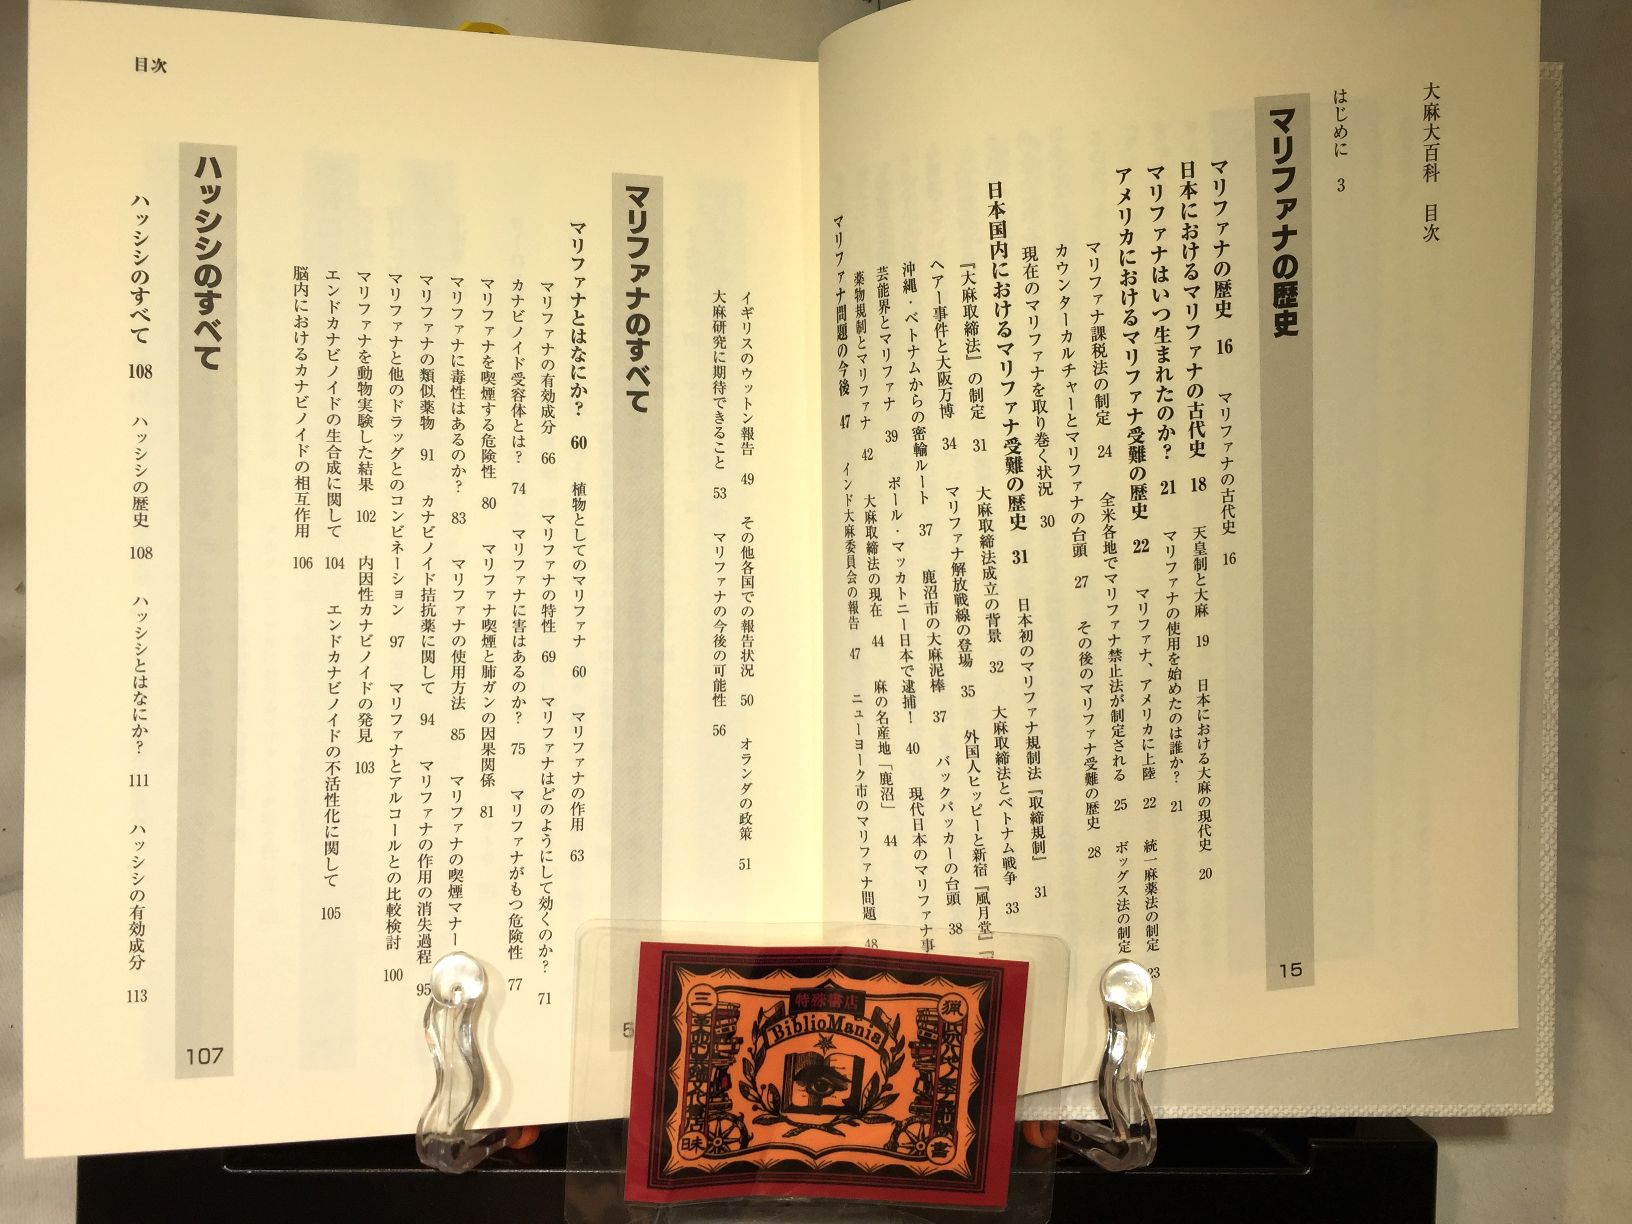 大麻大百科 目次
はじめに 3
マリファナの歴史 15
マリファナの歴史 16 マリファナの古代史 16
日本におけるマリファナの古代史 18 天皇制と大麻 19 日本における大麻の現代史 20
マリファナはいつ生まれたのか? 21 マリファナの使用を始めたのは誰か? 21
アメリカにおけるマリファナ受難の歴史 22 マリファナ、アメリカに上陸 22 統一麻薬法の制定 23
マリファナ課税法の制定 24 全米各地でマリファナ禁止法が制定される 25 ボッグス法の制定
カウンターカルチャーとマリファナの台頭 27 その後のマリファナ受難の歴史 28
現在のマリファナを取り巻く状況 30
日本国内におけるマリファナ受難の歴史 31 日本初のマリファナ規制法『取締規制』 31
『大麻取締法』の制定 31 大麻取締法成立の背景 32 大麻取締法とベトナム戦争 33
ヘアー事件と大阪万博 34 マリファナ解放戦線の登場 35 外国人ヒッピーと新宿『風月堂』
沖縄・ベトナムからの密輸ルート 37 鹿沼市の大麻泥棒 37 バックパッカーの台頭 38
芸能界とマリファナ 39 ポール・マッカトニー日本で逮捕! 40 現代日本のマリファナ事
薬物規制とマリファナ 42 大麻取締法の現在 44 麻の名産地「鹿沼」 44
マリファナ問題の今後 47 インド大麻委員会の報告 47 ニューヨーク市のマリファナ問題 48
目次
イギリスのウットン報告 49 その他各国での報告状況 50 オランダの政策 51
大麻研究に期待できること 53 マリファナの今後の可能性 56
マリファナのすべて
マリファナとはなにか? 60 植物としてのマリファナ 60 マリファナの作用 63
マリファナの有効成分 66 マリファナの特性 69 マリファナはどのようにして効くのか? 71
カナビノイド受容体とは? 74 マリファナに害はあるのか? 75 マリファナがもつ危険性 77
マリファナを喫煙する危険性 80 マリファナ喫煙と肺ガンの因果関係 81
マリファナに毒性はあるのか? 83 マリファナの使用方法 85 マリファナの喫煙マナー
マリファナの類似薬物 91 カナビノイド拮抗薬に関して 94 マリファナの作用の消失過程 95
マリファナと他のドラッグとのコンビネーション 97 マリファナとアルコールとの比較検討 100
マリファナを動物実験した結果 102 内因性カナビノイドの発見 103
エンドカナビノイドの生合成に関して 104 エンドカナビノイドの不活性化に関して 105
脳内におけるカナビノイドの相互作用 106
ハッシシのすべて 107
ハッシシのすべて 108 ハッシシの歴史 108 ハッシシとはなにか? 111 ハッシシの有効成分 113
特殊書店
BiblioMania